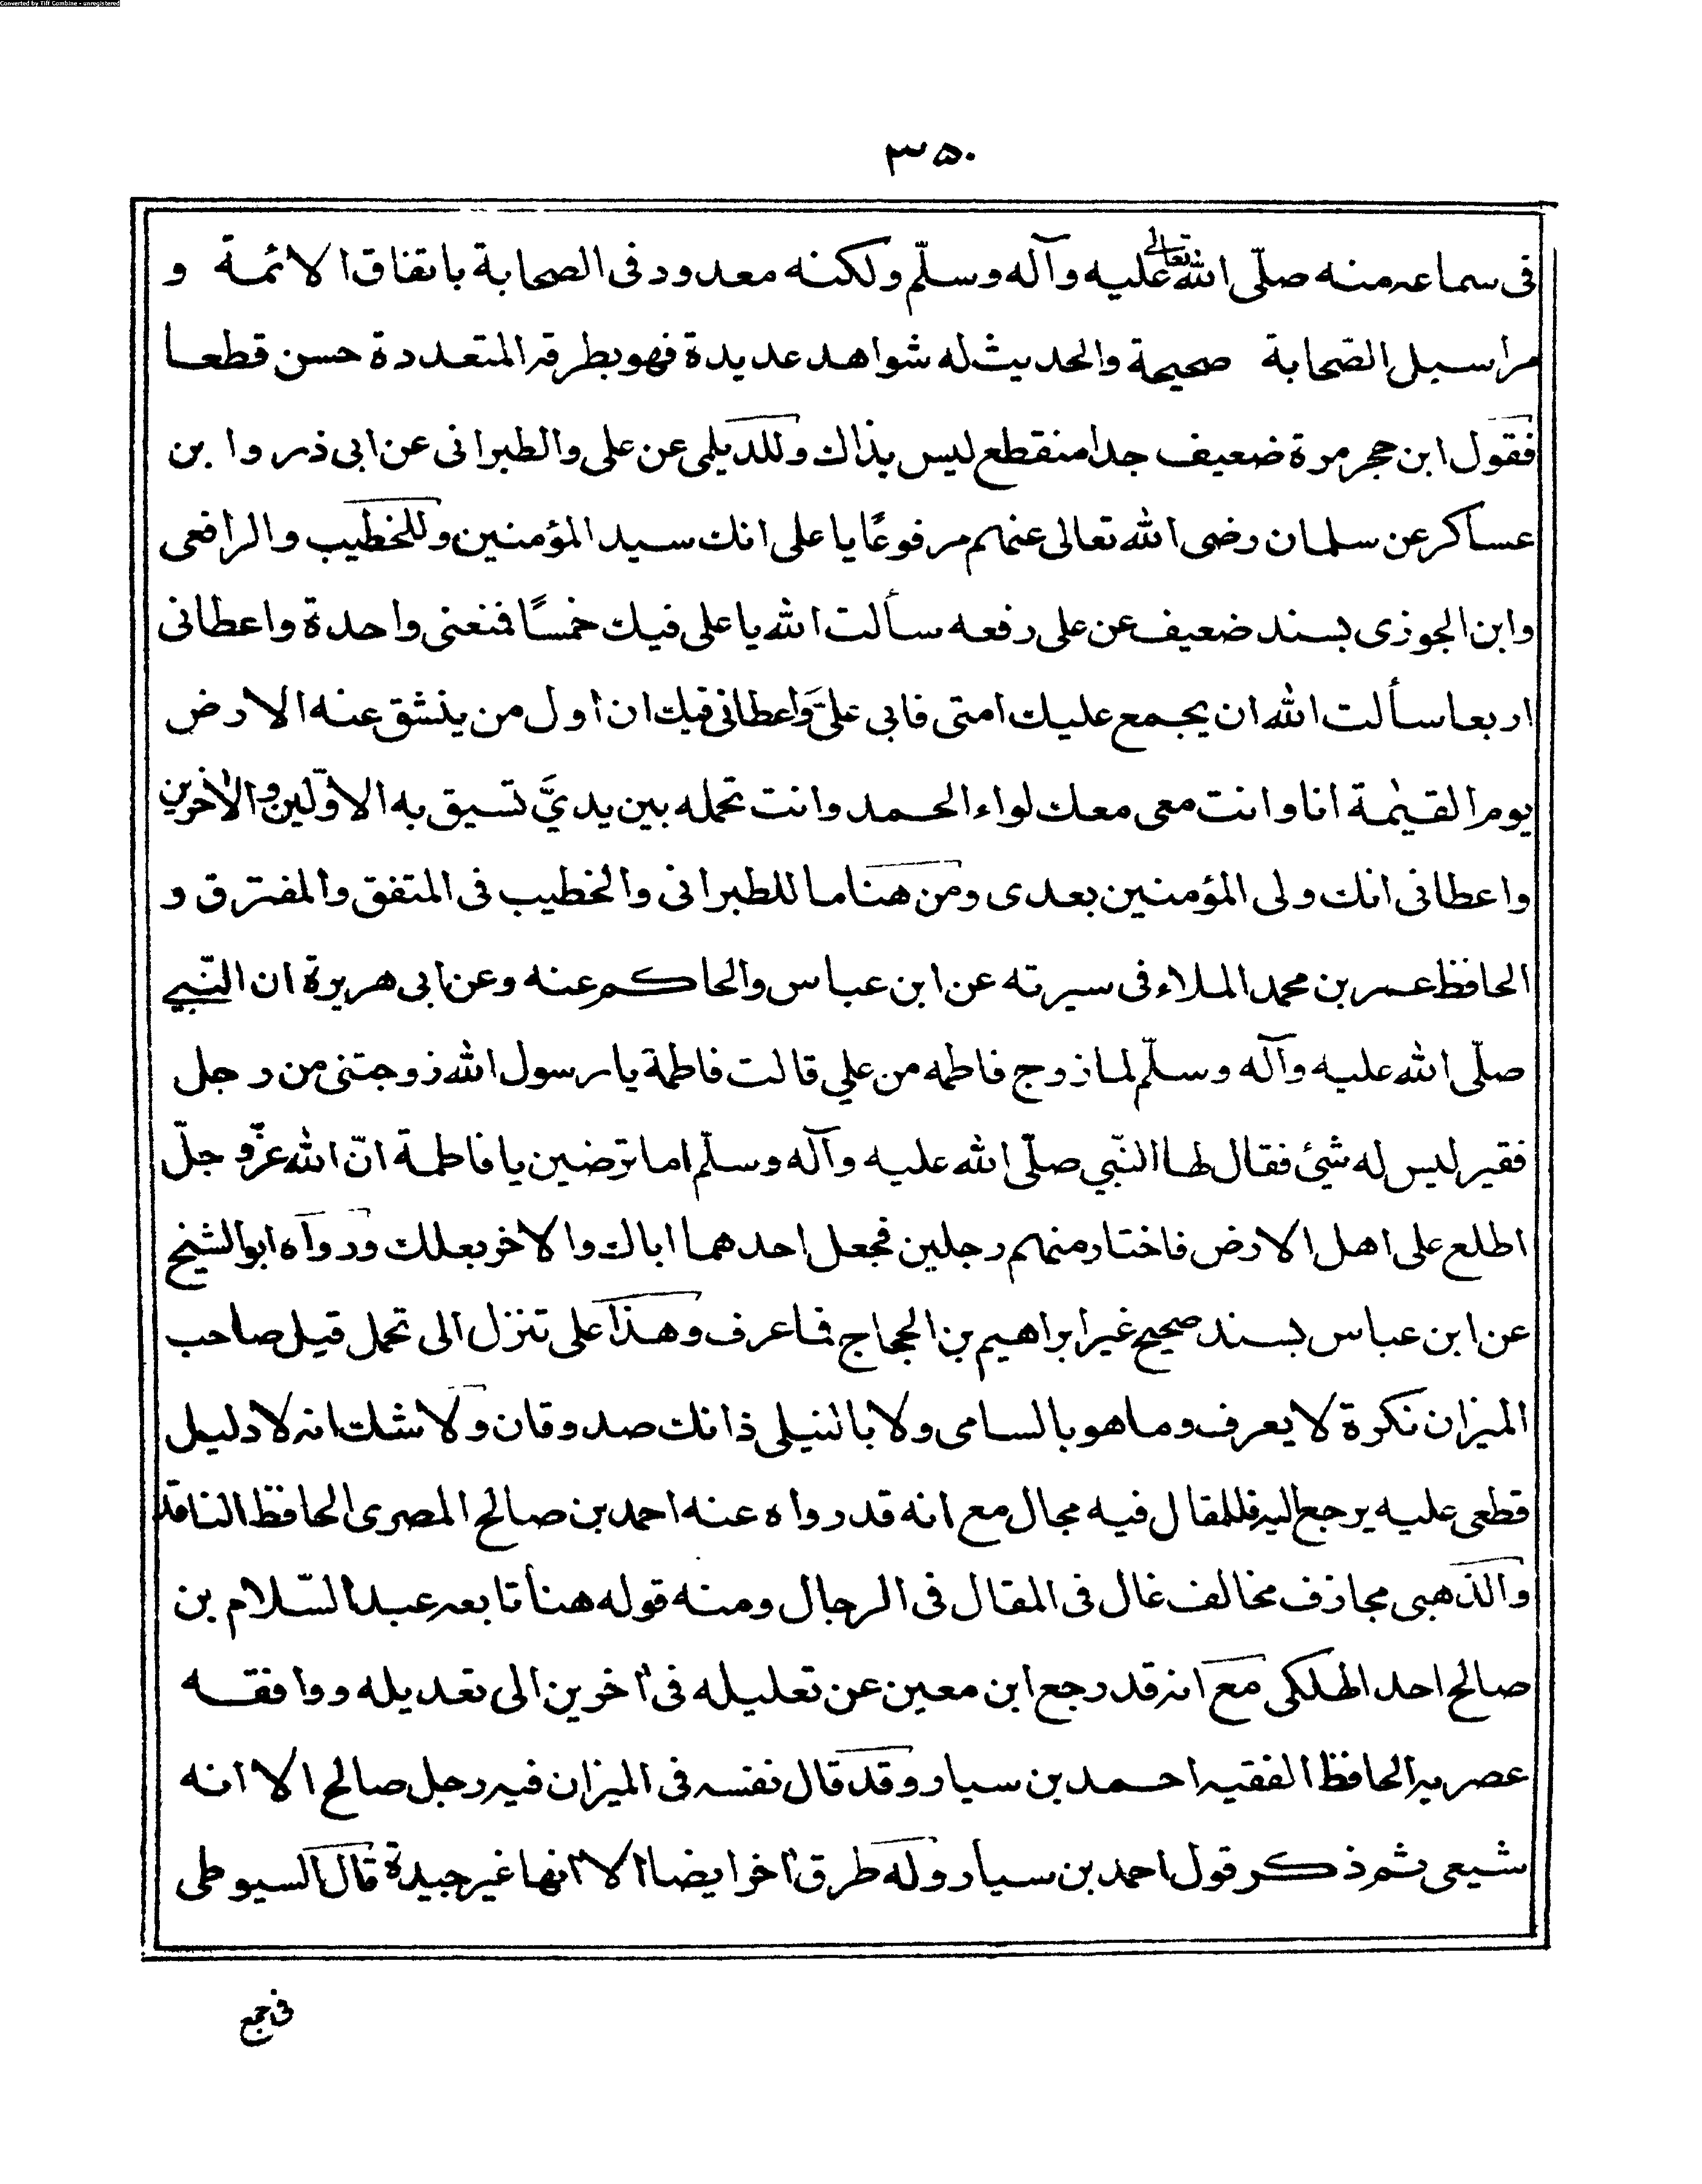 Converted by Tiff Combine - unregistered
۳۵۰
فی سماعہ منه صلّی الله تعالی علیه وآله وسلّم ولكنه معدود فی الصحابة باتفاق الائمة و
مراسيل الصّحابة صحيحة والحديث له شواهد عديدة فهو بطرقہ المتعددة حسن قطعا
فقول ابن حجر مرة ضعيف جدا منقطع ليس بذاك وللديلمی عن علی والطبرانی عن ابی ذر وابن
عساكر عن سلمان رضی الله تعالی عنهم مرفوعًا يا علی انك سيد المؤمنين وللخطيب والرافعی
وابن الجوزی بسند ضعيف عن علی رفعه سألت الله يا علی فيك خمسًا فمنعنی واحدة واعطانی
اربعا سألت الله ان يجمع عليك امتی فابی علیَّ واعطانی فيك ان اول من ينشق عنه الارض
يوم القيٰمة انا وانت معی معك لواء الحمد وانت تحمله بين يدیَّ تسبق به الاوّلين والاٰخرين
واعطانی انك ولی المؤمنين بعدی ومن هنا ما للطبرانی والخطيب فی المتفق والمفترق و
الحافظ عمر بن محمد الملاء فی سيرته عن ابن عباس والحاكم عنه وعن ابی هريرة ان النّبی
صلّی الله عليه وآله وسلّم لما زوج فاطمه من علی قالت فاطمة يا رسول الله زوجتنی من رجل
فقير ليس له شیئ فقال لها النّبی صلّی الله عليه وآله وسلّم اما ترضين يا فاطمة انّ الله عزّ و جلّ
اطلع علی اهل الارض فاختار منهم رجلين فجعل احدهما اباك والاخر بعلك ورواه ابو الشيخ
عن ابن عباس بسند صحيح غير ابراهيم بن الحجاج فاعرف وهذا علی تنزل الی تحمل قيل صاحب
الميزان نكرة لا يعرف وما هو بالسامی ولا بالنيلی ذانك صدوقان ولا شك انہ لا دليل
قطعی عليه يرجع اليہ فللمقال فيه مجال مع انه قد رواه عنه احمد بن صالح المصری الحافظ الناقد
والذهبی مجازف مخالف غال فی المقال فی الرجال ومنه قوله هنا تابعہ عبد السّلام بن
صالح احد الهلكی مع انہ قد رجع ابن معين عن تعليله فی اٰخرين الی تعديله ووافقه
عصريہ الحافظ الفقيہ احمد بن سيار وقد قال نفسہ فی الميزان فيہ رجل صالح الا انه
شيعی ثم ذكر قول احمد بن سيار وله طرق اٰخر ايضا الا انها غير جيدة قال السيوطی
فی جمع